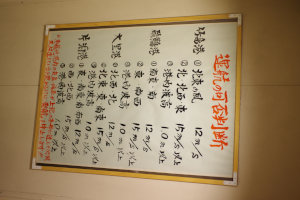 運航の可否判断
竹島港 ① 北東の風 12m/s
② 北・北西・東 15m/s以上
③ 港内波高 1.0m以上
硫黄島港 ① 南東・南 12m/s
② 東・南西 15m/s以上
③ 港内波高 1.0m以上
大里港 ① 北西・北 12m/s
② 北東・東・南東 15m/s以上
③ 港内波高 1.0m以上
片泊港 ① 東・南東・南・西 12m/s
② 西・北西 15m/s以上
③ 港内波高 1.0m以上